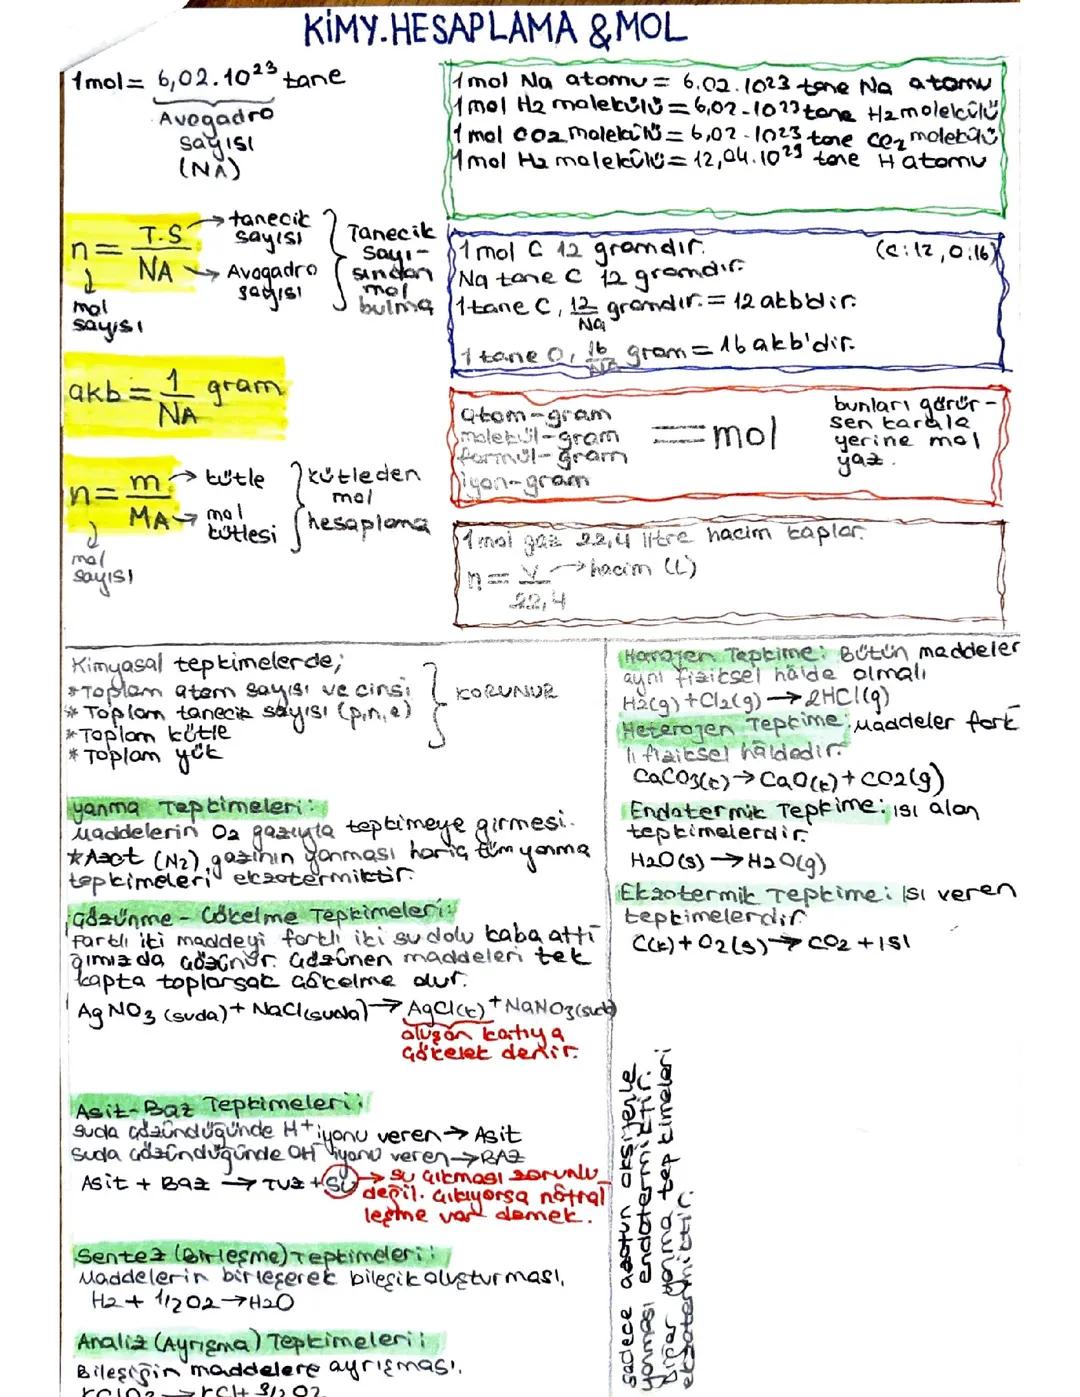 KİMY.HESAPLAMA & MOL
1mol = 6,02.10²³ tane
Avogadro
sayısı
(NA)
1mol Na atomu = 6.02.10²³ tane Na atomu
1mol H2 molekülü = 6,02.10²³ tane H2 molekülü
1mol CO2 molekülü = 6,02.10²³ tane CO2 molekülü
1mol H2 molekülü = 12,04.10²³ tane H atomu
n = T.S / NA
→ tanecik sayısı
→ Avogadro sayısı
↓
mol
sayısı
Tanecik
sayı-
sından
mol
bulma
1mol C 12 gramdır. (C:12, O:16)
Na tane C 12 gramdır.
1 tane C, 12/Na gramdır. = 12 akb'dir.
1 tane O, 16/NA gram = 16 akb'dir.
akb = 1/NA gram
atom-gram
molekül-gram
formül-gram
iyon-gram
= mol
bunları görür-
sen karala
yerine mol
yaz.
n = m / MA
→ kütle
→ mol kütlesi
↓
mol
sayısı
kütleden
mol
hesaplama
1 mol gaz 22,4 litre hacim kaplar.
n = V / 22,4
→ hacim (L)
Kimyasal tepkimelerde;
*Toplam atom sayısı ve cinsi
*Toplam tanecik sayısı (p,n,e)
*Toplam kütle
*Toplam yük
KORUNUR
Yanma Tepkimeleri:
Maddelerin O2 gazıyla tepkimeye girmesi.
*Azot (N2) gazının yanması hariç tüm yanma
tepkimeleri ekzotermiktir.
Çözünme - Çökelme Tepkimeleri:
Farklı iki maddeyi farklı iki su dolu kaba attı
ğımızda çözünür. Çözünen maddeleri tek
kapta toplarsak çökelme olur.
AgNO3 (suda) + NaCl (suda) → AgCl(k) + NaNO3(suda)
oluşan katıya
çökelek denir.
Asit-Baz Tepkimeleri:
Suda çözündüğünde H+ iyonu veren → Asit
Suda çözündüğünde OH⁻ iyonu veren → BAZ
Asit + Baz → Tuz + Su
→ su çıkması zorunlu
değil. Çıkıyorsa nötral
leşme var demek.
Sentez (Birleşme) Tepkimeleri:
Maddelerin birleşerek bileşik oluşturması.
H2 + 1/2 O2 → H2O
Analiz (Ayrışma) Tepkimeleri:
Bileşiğin maddelere ayrışması.
KClO3 → KCl + 3/2 O2
Homojen Tepkime: Bütün maddeler
aynı fiziksel hâlde olmalı
H2(g) + Cl2(g) → 2HCl(g)
Heterojen Tepkime: Maddeler fark
lı fiziksel hâldedir.
CaCO3(k) → CaO(k) + CO2(g)
Endotermik Tepkime: ısı alan
tepkimelerdir.
H2O(s) → H2O(g)
Ekzotermik Tepkime: Isı veren
tepkimelerdir
C(k) + O2(s) → CO2 + ısı
sadece azotun oksijenle
yanması endotermiktir.
Diğer yanma tepkimeleri
ekzotermiktir.